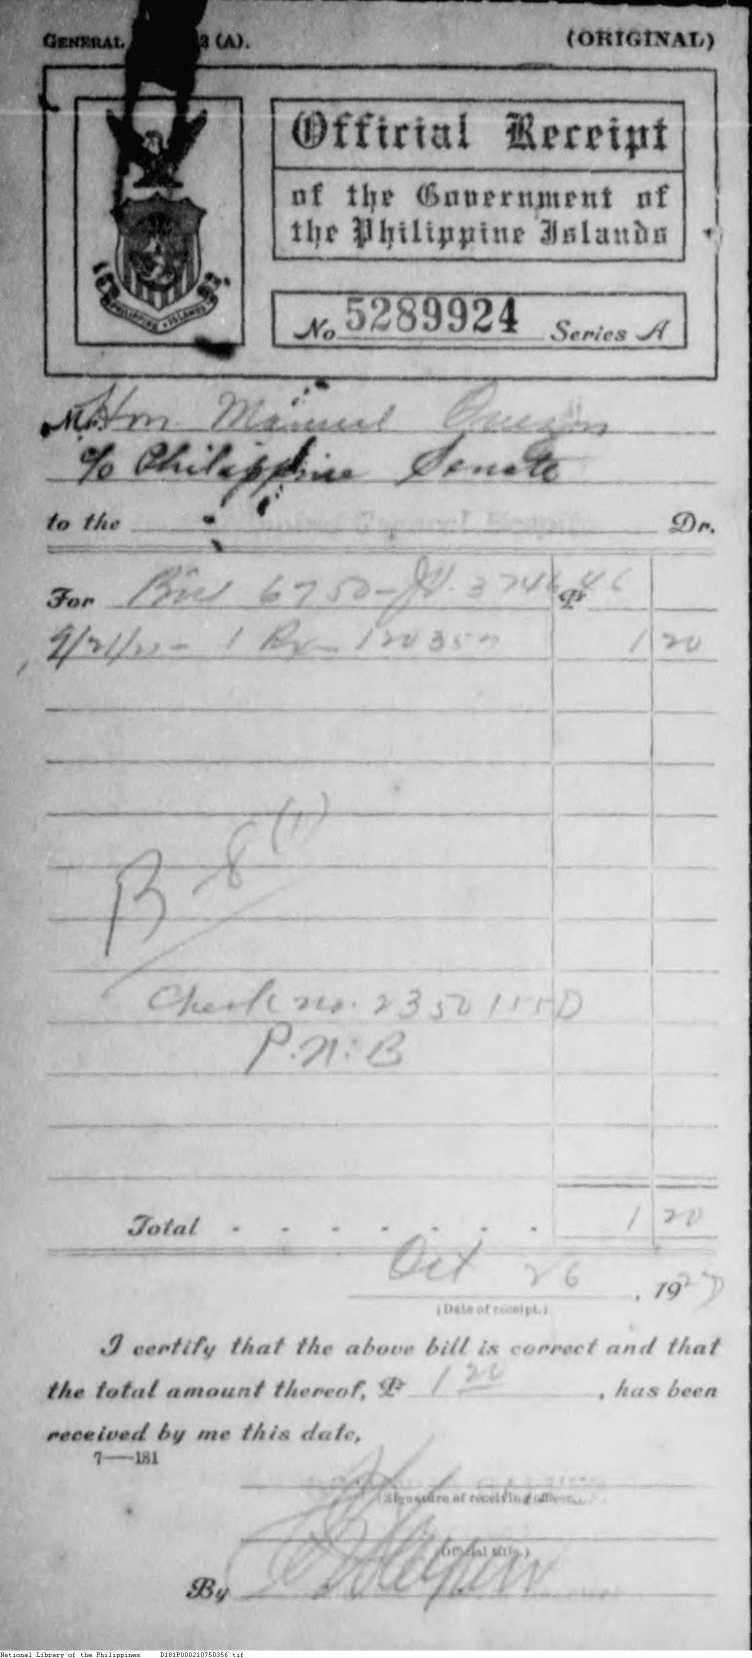 GENERAL (A).
(ORIGINAL)
Official Receipt
of the Government of
the Philippine Islands
PHILIPPINE ISLANDS
No 5289924 Series A
M Hon Manuel Quezon
c/o Philippine Senate
to the Dr.
For Bill 6750 - 3746 ₱ 46
9/21/ - 1 Rx - 1 20
B - 8 (1)
Check no. 2350 D
P.N.B
Total 1 20
Oct 26, 192
(Date of receipt.)
I certify that the above bill is correct and that
the total amount thereof, ₱ 1 20, has been
received by me this date.
7—181
(Signature of receiving officer.)
(Official title.)
By
National Library of the Philippines D181P000210750356.tif